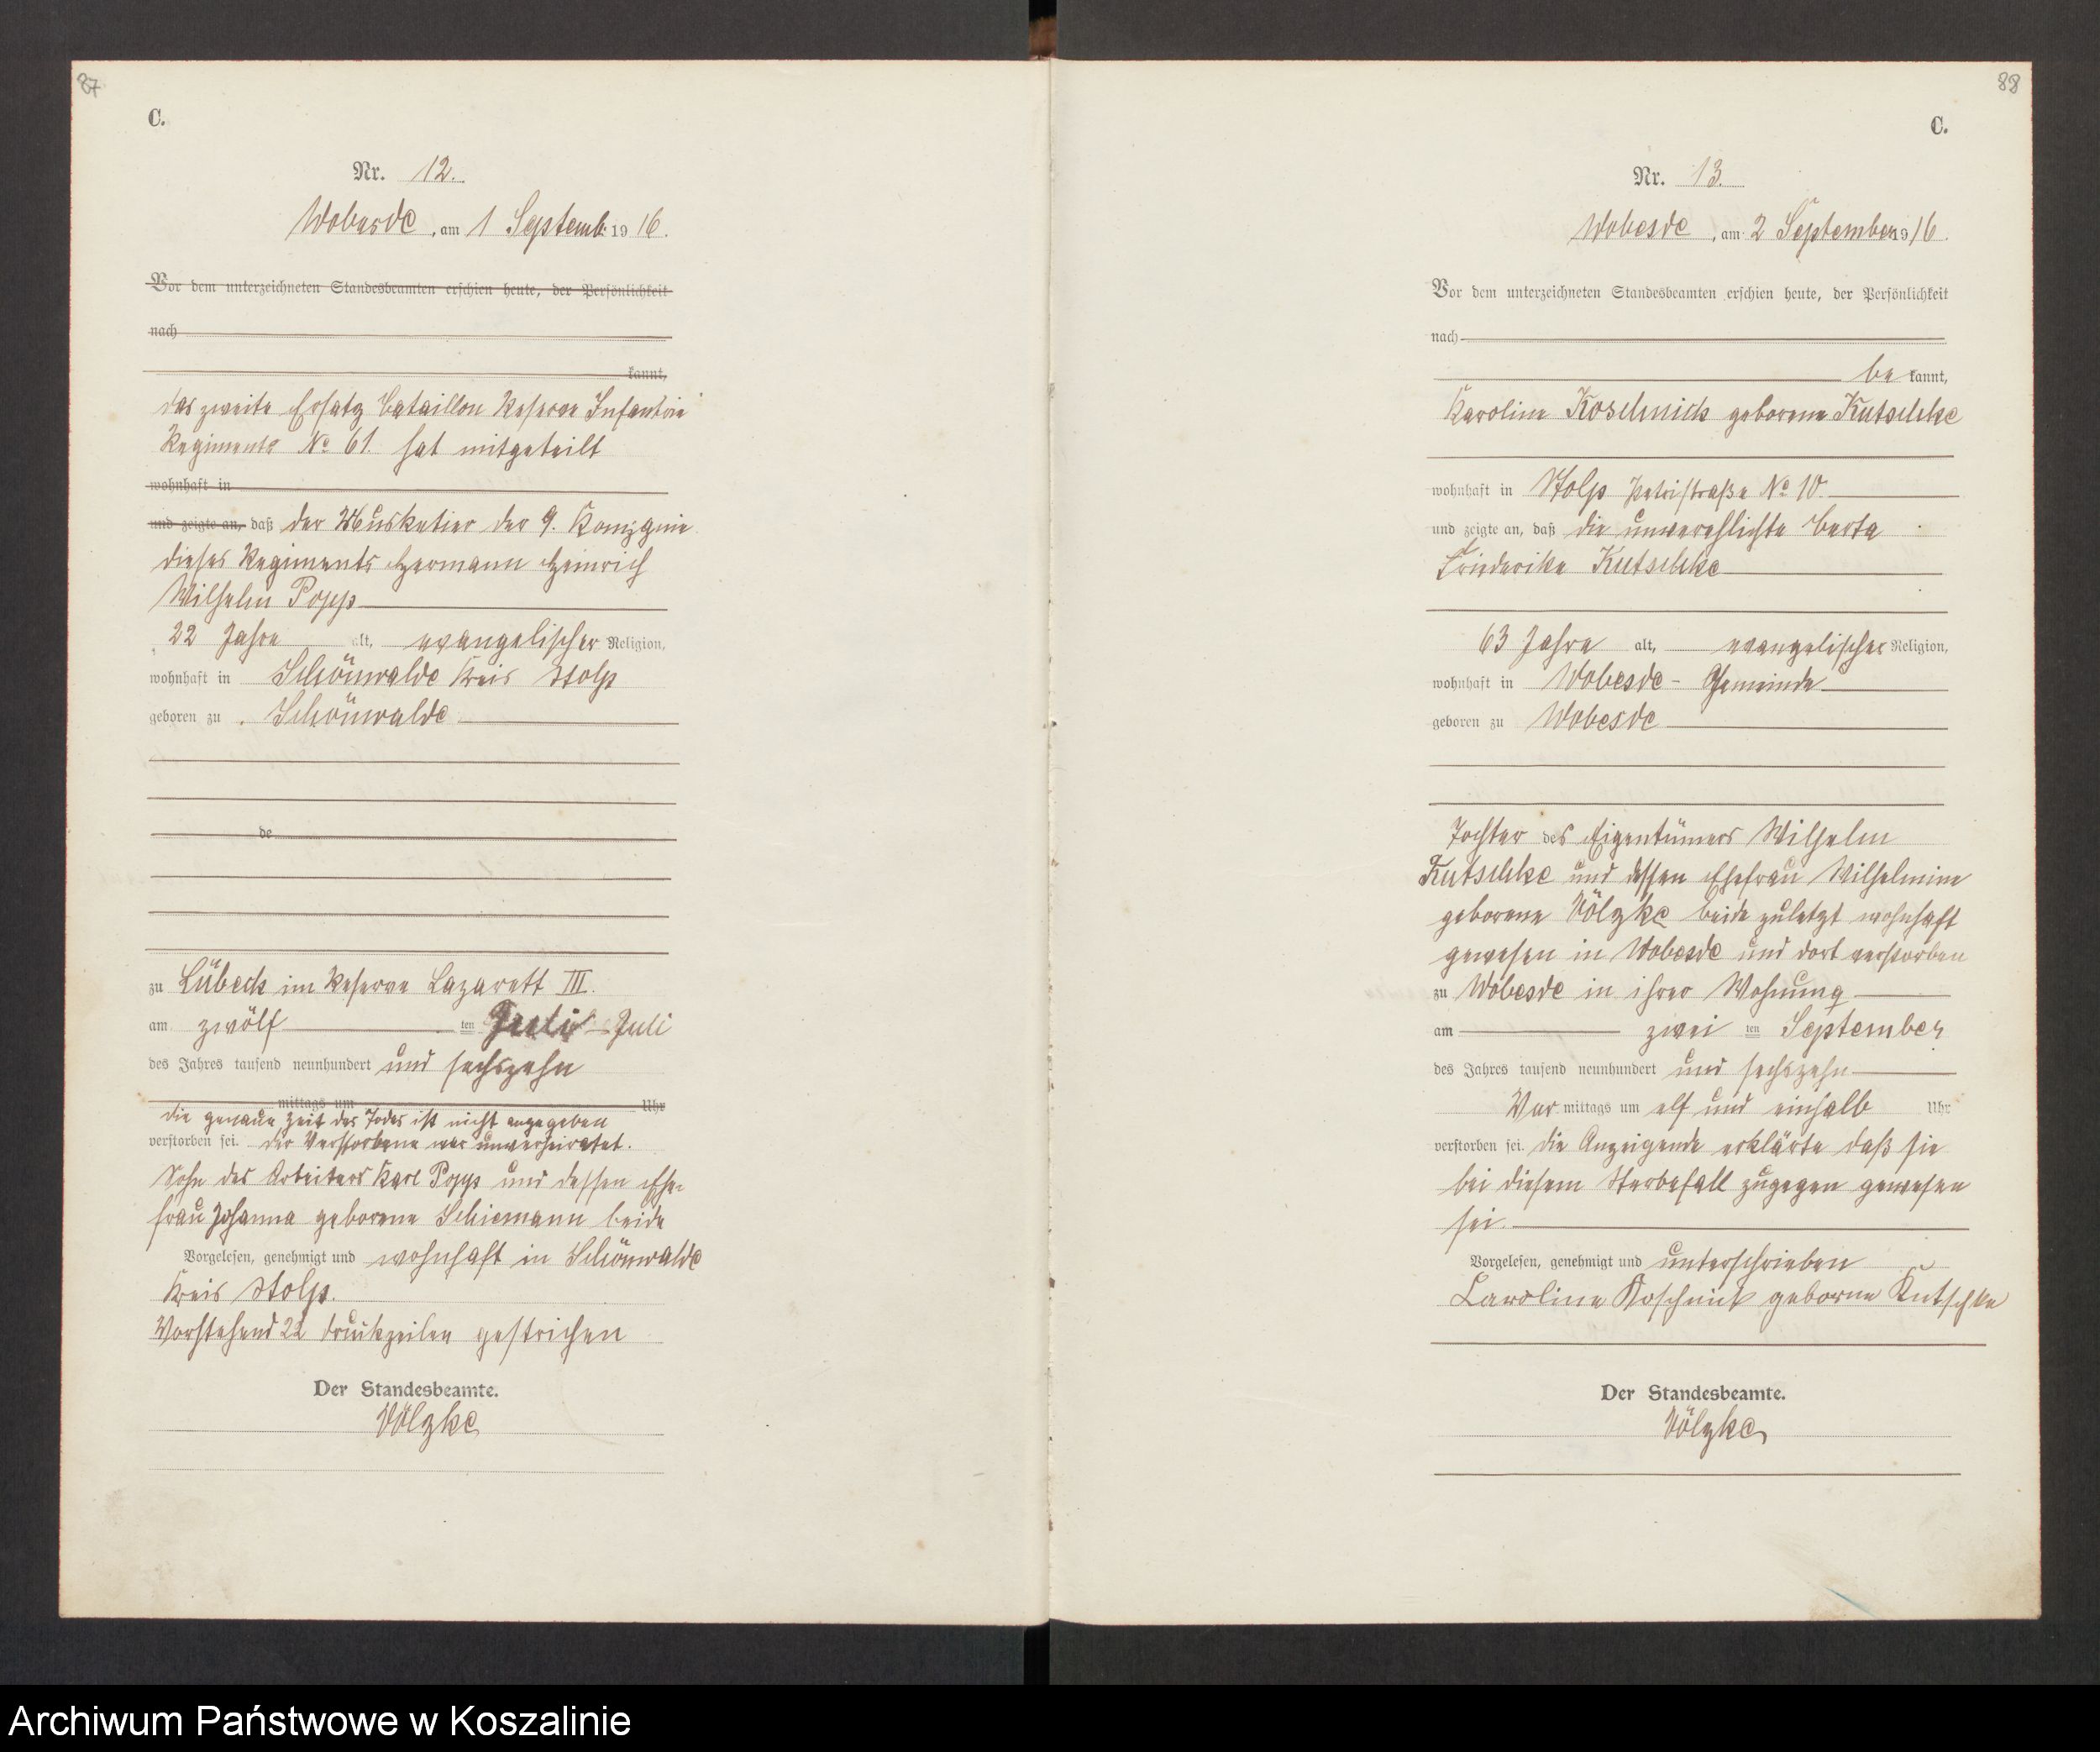 87
C.
Nr. 12.
Wobesde, am 1 Septemb. 1916.
Vor dem unterzeichneten Standesbeamten erschien heute, der Persönlichkeit
nach
kannt,
das zweite Ersatz Bataillon Reserve Infanterie
Regiments No 61. hat mitgeteilt
wohnhaft in
und zeigte an, daß der Musketier der 9. Kompgnie
dieses Regiments Hermann Heinrich
Wilhelm Popp
22 Jahre alt, evangelischer Religion,
wohnhaft in Schönwalde Kreis Stolp
geboren zu Schönwalde
de
zu Lübeck im Reserve Lazarett III.
am zwölf ten Juli Juli
des Jahres tausend neunhundert und sechszehn
mittags um Uhr
die genaue Zeit des Todes ist nicht angegeben
verstorben sei. der Verstorbene war unverheiratet.
Sohn des Arbeiters Karl Popp und dessen Ehe-
frau Johanna geborene Schiemann beide
Vorgelesen, genehmigt und wohnhaft in Schönwalde
Kreis Stolp.
Vorstehend 22 Druckzeilen gestrichen
Der Standesbeamte.
Völzke
88
C.
Nr. 13.
Wobesde, am 2 September 1916.
Vor dem unterzeichneten Standesbeamten erschien heute, der Persönlichkeit
nach
be kannt,
Karoline Koschnick geborene Kutschke
wohnhaft in Stolp Petristraße No 10.
und zeigte an, daß die unverehlichte Berta
Friederike Kutschke
63 Jahre alt, evangelischer Religion,
wohnhaft in Wobesde - Gemeinde
geboren zu Wobesde
Tochter des Eigentümers Wilhelm
Kutschke und dessen Ehefrau Wilhelmine
geborene Völzke beide zuletzt wohnhaft
gewesen in Wobesde und dort verstorben
zu Wobesde in ihrer Wohnung
am zwei ten September
des Jahres tausend neunhundert und sechszehn
Vor mittags um elf und einhalb Uhr
verstorben sei. die Anzeigende erklärte daß sie
bei diesem Sterbefall zugegen gewesen
sei.
Vorgelesen, genehmigt und unterschrieben
Caroline Koschnick geborne Kutschke
Der Standesbeamte.
Völzke
Archiwum Państwowe w Koszalinie